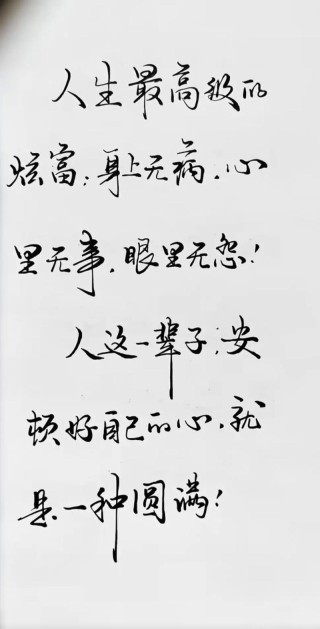 人生最高级的
炫富:身上无病,心
里无事,眼里无怨!
人这一辈子,安
顿好自己的心,就
是一种圆满!